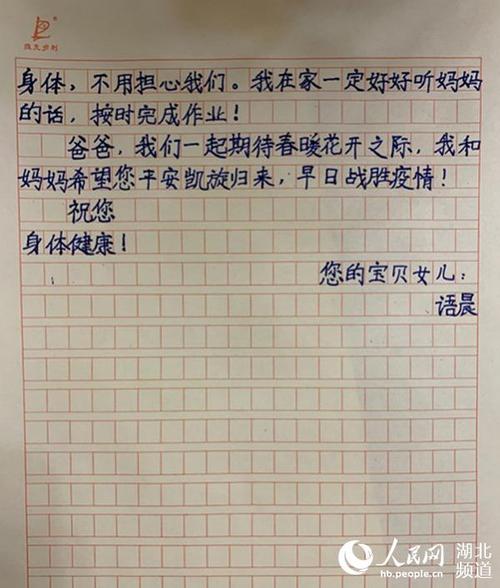 身体，不用担心我们。我在家一定好好听妈妈
的话，按时完成作业！
爸爸，我们一起期待春暖花开之际，我和
妈妈希望您平安凯旋归来，早日战胜疫情！
祝您
身体健康！
您的宝贝女儿：
语晨
人民网 湖北频道
hb.people.cn